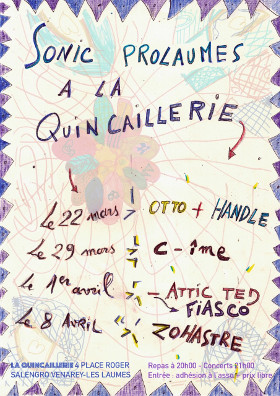 SONIC PROLAUMES
A LA
QUINCAILLERIE
Le 22 mars > OTTO + HANDLE
Le 29 mars > C-îme
Le 1er avril > - ATTIC TED
→ FiASCO
Le 8 AVRIL > ZOHASTRE
LA QUINCAILLERIE 4 PLACE ROGER
SALENGRO VENAREY-LES LAUMES
Repas à 20h00 - Concerts 21h00
Entrée : adhésion à l'asso + prix libre